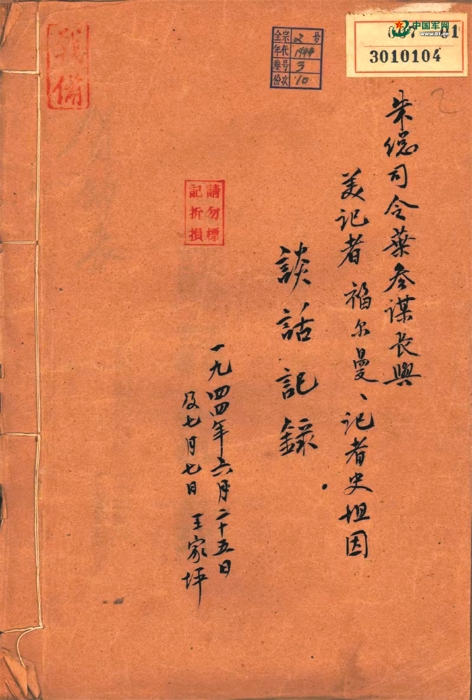 朱总司令叶参谋长與
美记者福尔曼、记者史坦因
談話記錄
一九四四年六月二十五日
及七月七日 王家坪
請勿標
記折損
战备
全宗 2 号
年代 1944
卷号 3
份次 10
中国军网
3010104
2